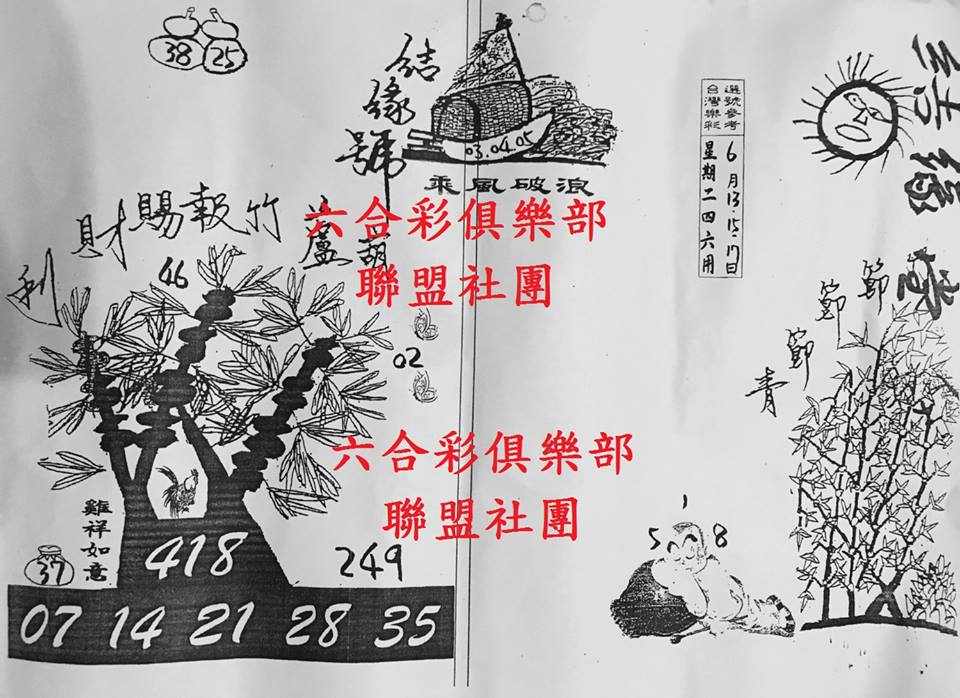 38 25
結緣號
03.04.05
乘風破浪
竹報賜財
利
葫蘆
46
六合彩俱樂部
聯盟社團
02
六合彩俱樂部
聯盟社團
雞祥如意
37
418
249
07 14 21 28 35
選號參考
台灣樂彩
6月13.15.17日
星期二四六用
節節節青
1
5 8